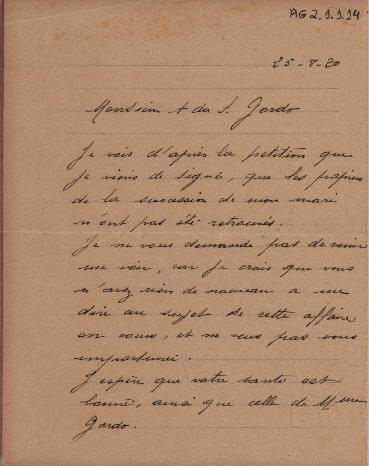 AG2.1.1.14
25-8-20
Monsieur A da S. Gordo
Je vois d'après la petition que
je viens de signé, que les papiers
de la succession de mon mari
n'ont pas été retrouvés.
Je ne vous demande pas de venir
me voir, car je crois que vous
n'avez rien de nouveau a me
dire au sujet de cette affaire
en cours, et ne veus pas vous
importuner.
J'espère que votre santé est
bonne, ainsi que celle de Mme
Gordo.